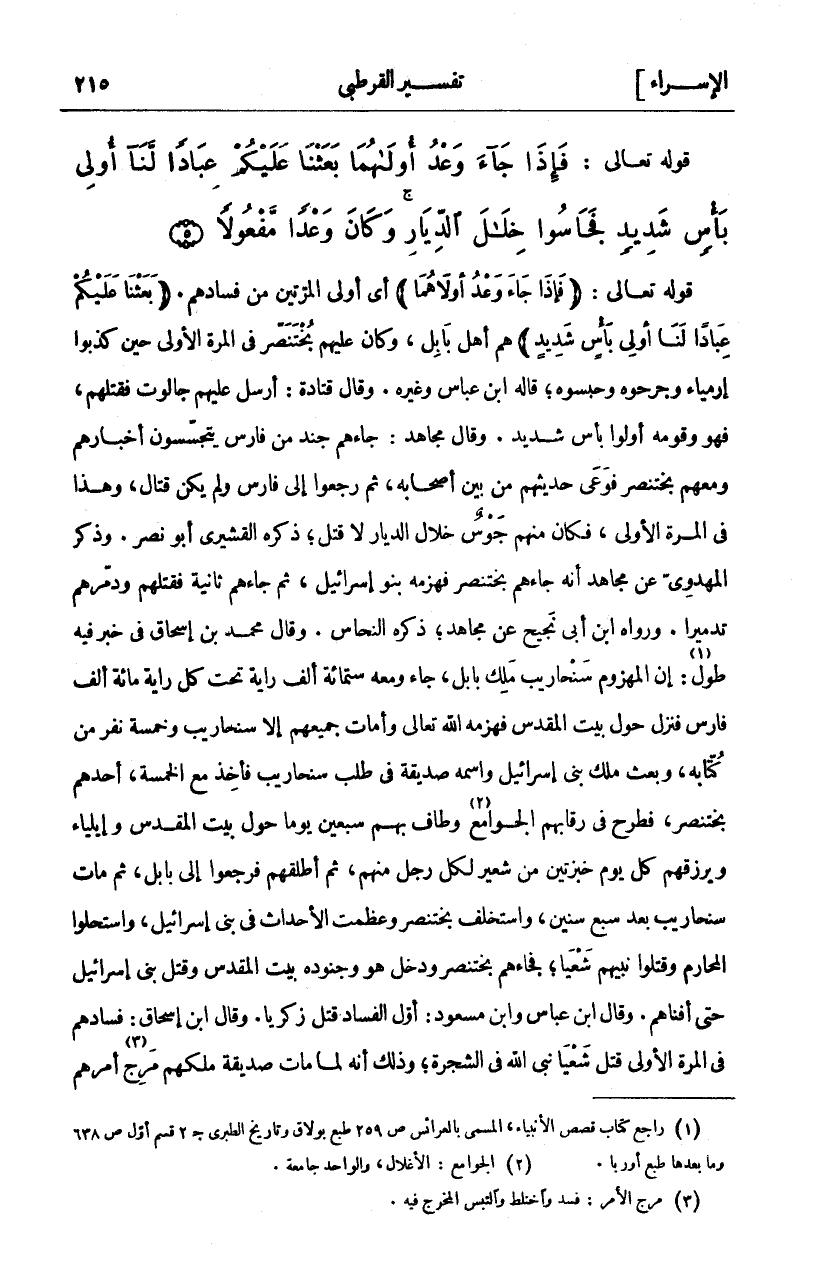 الإسراء ] تفسير القرطبي ٢١٥
قوله تعالى : فَإِذَا جَآءَ وَعْدُ أُولَىٰهُمَا بَعَثْنَا عَلَيْكُمْ عِبَادًا لَّنَآ أُو۟لِى
بَأْسٍ شَدِيدٍ فَجَاسُوا خِلَٰلَ ٱلدِّيَارِ ۚ وَكَانَ وَعْدًا مَّفْعُولًا ۝٥
قوله تعالى : ﴿ فَإِذَا جَاءَ وَعْدُ أُولَاهُمَا ﴾ أى أولى المرّتين من فسادهم . ﴿ بَعَثْنَا عَلَيْكُمْ
عِبَادًا لَنَا أُولِى بَأْسٍ شَدِيدٍ ﴾ هم أهل بَابِل ، وكان عليهم بُخْتَنَصّر فى المرة الأولى حين كذبوا
إرمياء وجرحوه وحبسوه ؛ قاله ابن عباس وغيره . وقال قتادة : أرسل عليهم جالوت فقتلهم ،
فهو وقومه أولوا بأس شديد . وقال مجاهد : جاءهم جند من فارس يتجسّسون أخبارهم
ومعهم بختنصر فوَعَى حديثهم من بين أصحابه ، ثم رجعوا إلى فارس ولم يكن قتال ، وهذا
فى المرة الأولى ، فكان منهم جَوْسٌ خلال الديار لا قتل ؛ ذكره القشيرى أبو نصر . وذكر
المهدوىّ عن مجاهد أنه جاءهم بختنصر فهزمه بنو إسرائيل ، ثم جاءهم ثانية فقتلهم ودمّرهم
تدميرا . ورواه ابن أبى نَجيح عن مجاهد ؛ ذكره النحاس . وقال محمد بن إسحاق فى خبر فيه
طول (١) : إن المهزوم سَنْحاريب مَلِك بابل ، جاء ومعه ستمائة ألف راية تحت كل راية مائة ألف
فارس فنزل حول بيت المقدس فهزمه الله تعالى وأمات جميعهم إلا سنحاريب وخمسة نفر من
كُتّابه ، وبعث ملك بنى إسرائيل واسمه صديقة فى طلب سنحاريب فأُخِذ مع الخمسة ، أحدهم
بختنصر ، فطرح فى رقابهم الجوامع (٢) وطاف بهم سبعين يوما حول بيت المقدس وإيلياء
ويرزقهم كل يوم خبزتين من شعير لكل رجل منهم ، ثم أطلقهم فرجعوا إلى بابل ، ثم مات
سنحاريب بعد سبع سنين ، واستخلف بختنصر وعظمت الأحداث فى بنى إسرائيل ، واستحلوا
المحارم وقتلوا نبيهم شَعْيَا ؛ فجاءهم بختنصر ودخل هو وجنوده بيت المقدس وقتل بنى إسرائيل
حتى أفناهم . وقال ابن عباس وابن مسعود : أوّل الفساد قتل زكريا . وقال ابن إسحاق : فسادهم
فى المرة الأولى قتل شَعْيَا نبى الله فى الشجرة ؛ وذلك أنه لما مات صديقة ملكهم مَرِج (٣) أمرهم
(١) راجع كتاب قصص الأنبياء ، المسمى بالعرائس ص ٢٥٩ طبع بولاق وتاريخ الطبرى جـ ٢ قسم أوّل ص ٦٣٨
وما بعدها طبع أوربا . (٢) الجوامع : الأغلال ، والواحد جامعة .
(٣) مرج الأمر : فسد وٱختلط وٱلتبس المخرج فيه .